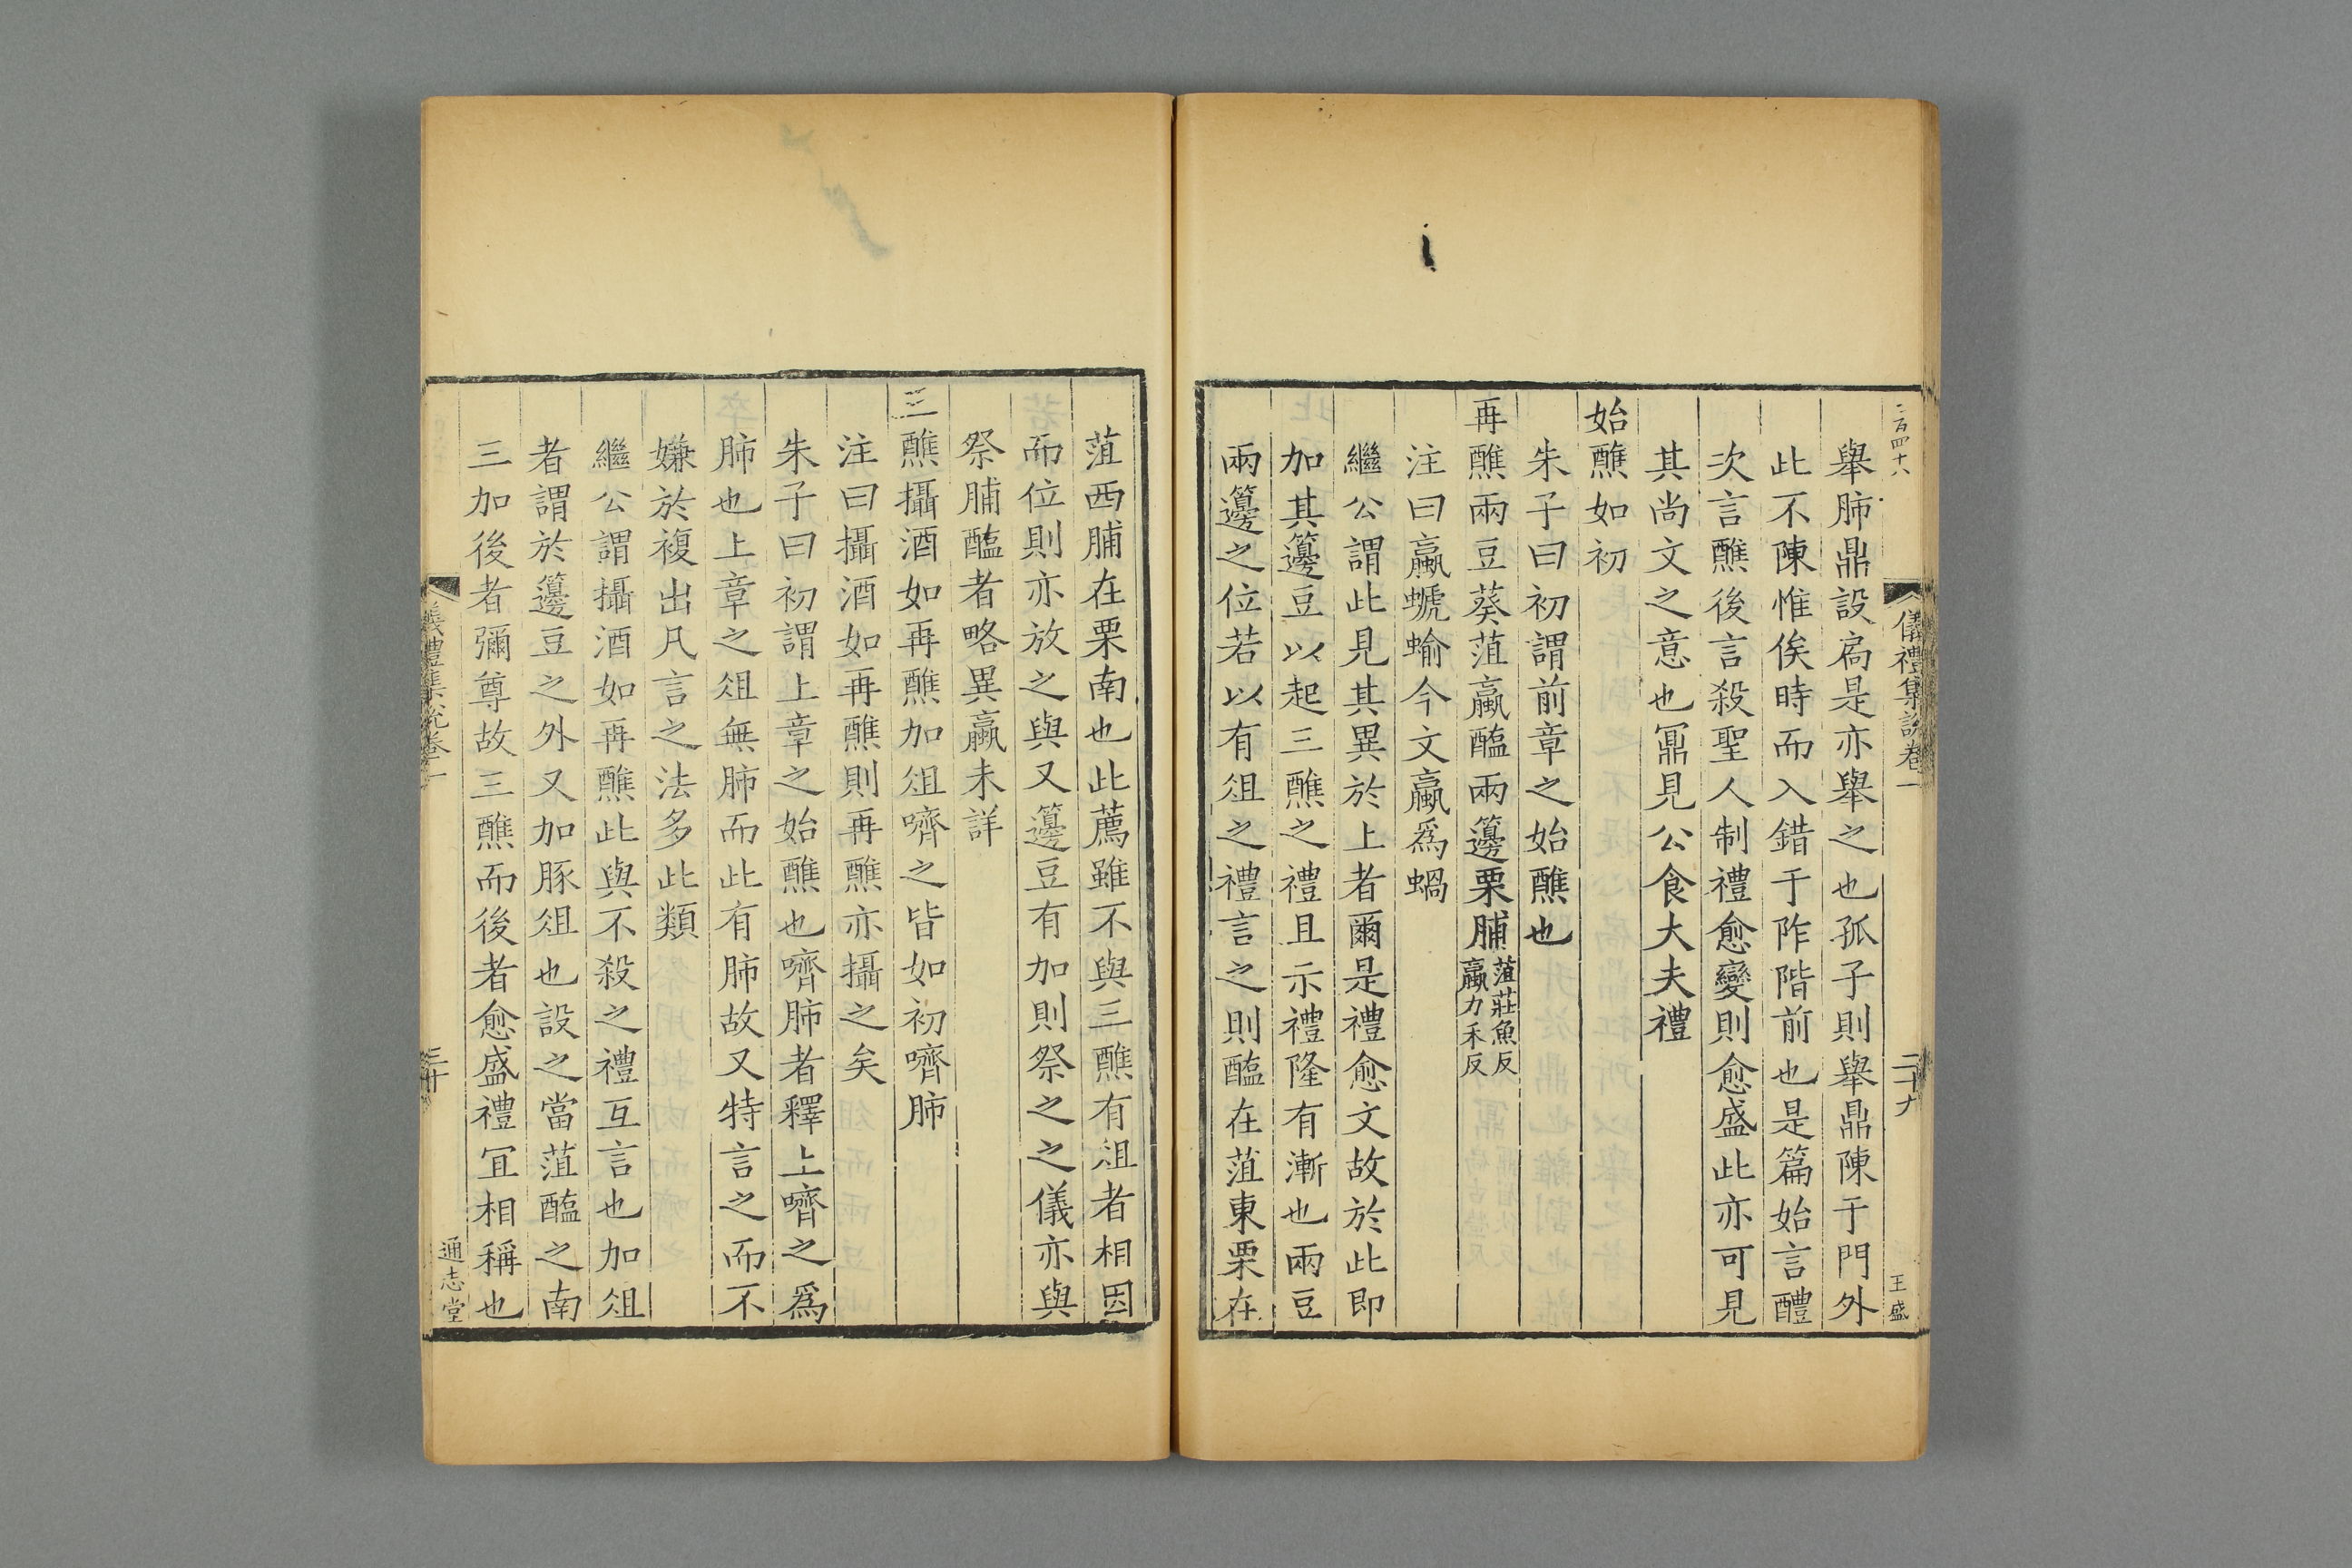 二百四十八
儀禮集說卷一
二十九
王盛
舉肺鼎設扃是亦舉之也孤子則舉鼎陳于門外
此不陳惟俟時而入錯于阼階前也是篇始言醴
次言醮後言殺聖人制禮愈變則愈盛此亦可見
其尚文之意也鼏見公食大夫禮
始醮如初
朱子曰初謂前章之始醮也
再醮兩豆葵菹蠃醢兩籩栗脯菹莊魚反
蠃力禾反
注曰蠃螔蝓今文蠃爲蝸
繼公謂此見其異於上者爾是禮愈文故於此即
加其籩豆以起三醮之禮且示禮隆有漸也兩豆
兩籩之位若以有俎之禮言之則醢在菹東栗在
菹西脯在栗南也此薦雖不與三醮有俎者相因
而位則亦放之與又籩豆有加則祭之之儀亦與
祭脯醢者略異蠃未詳
三醮攝酒如再醮加俎嚌之皆如初嚌肺
注曰攝酒如再醮則再醮亦攝之矣
朱子曰初謂上章之始醮也嚌肺者釋上嚌之爲
肺也上章之俎無肺而此有肺故又特言之而不
嫌於複出凡言之法多此類
繼公謂攝酒如再醮此與不殺之禮互言也加俎
者謂於籩豆之外又加豚俎也設之當菹醢之南
三加後者彌尊故三醮而後者愈盛禮冝相稱也
儀禮集說卷一
三十
通志堂